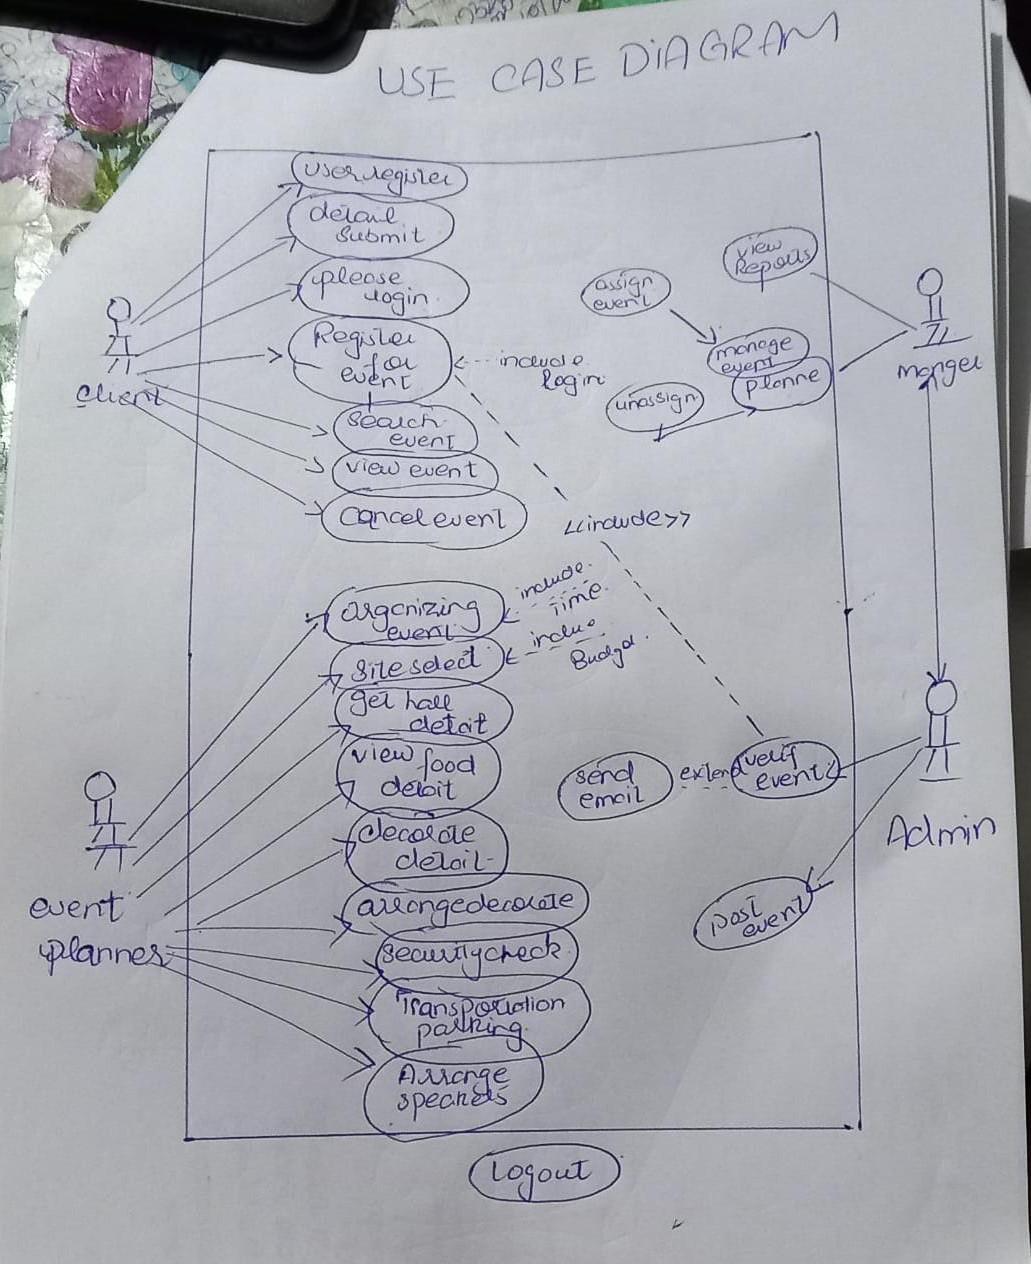 USE CASE DIAGRAM
User register
detail
submit
please
login
Register
for
event
include
login
search
event
view event
cancel event
client
view
Reports
assign
event
manage
event
planne
unassign
manger
<<include>>
organizing
event
include
Time
site select
inclue
Budget
get hall
detait
view food
detait
decorate
detail
arrangedecorate
securitycheck
Transportation
parking
Arrange
speakers
event
planner
send
email
extend
verif
event
Admin
post
event
Logout